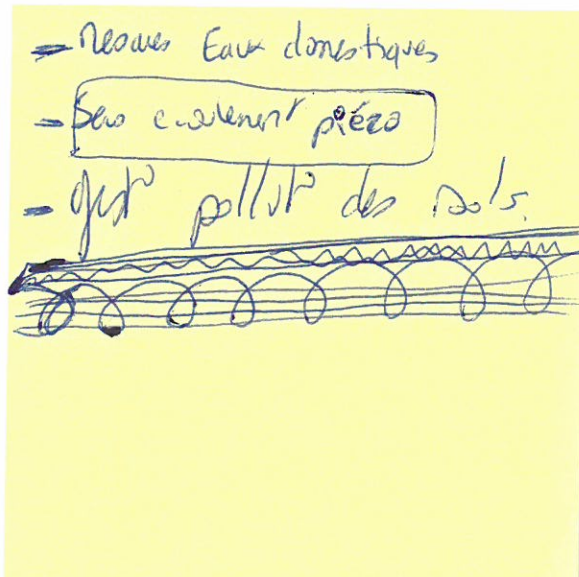 - Mesures Eaux domestiques
- Sens écoulement piézo
- gest° pollut° des sols.